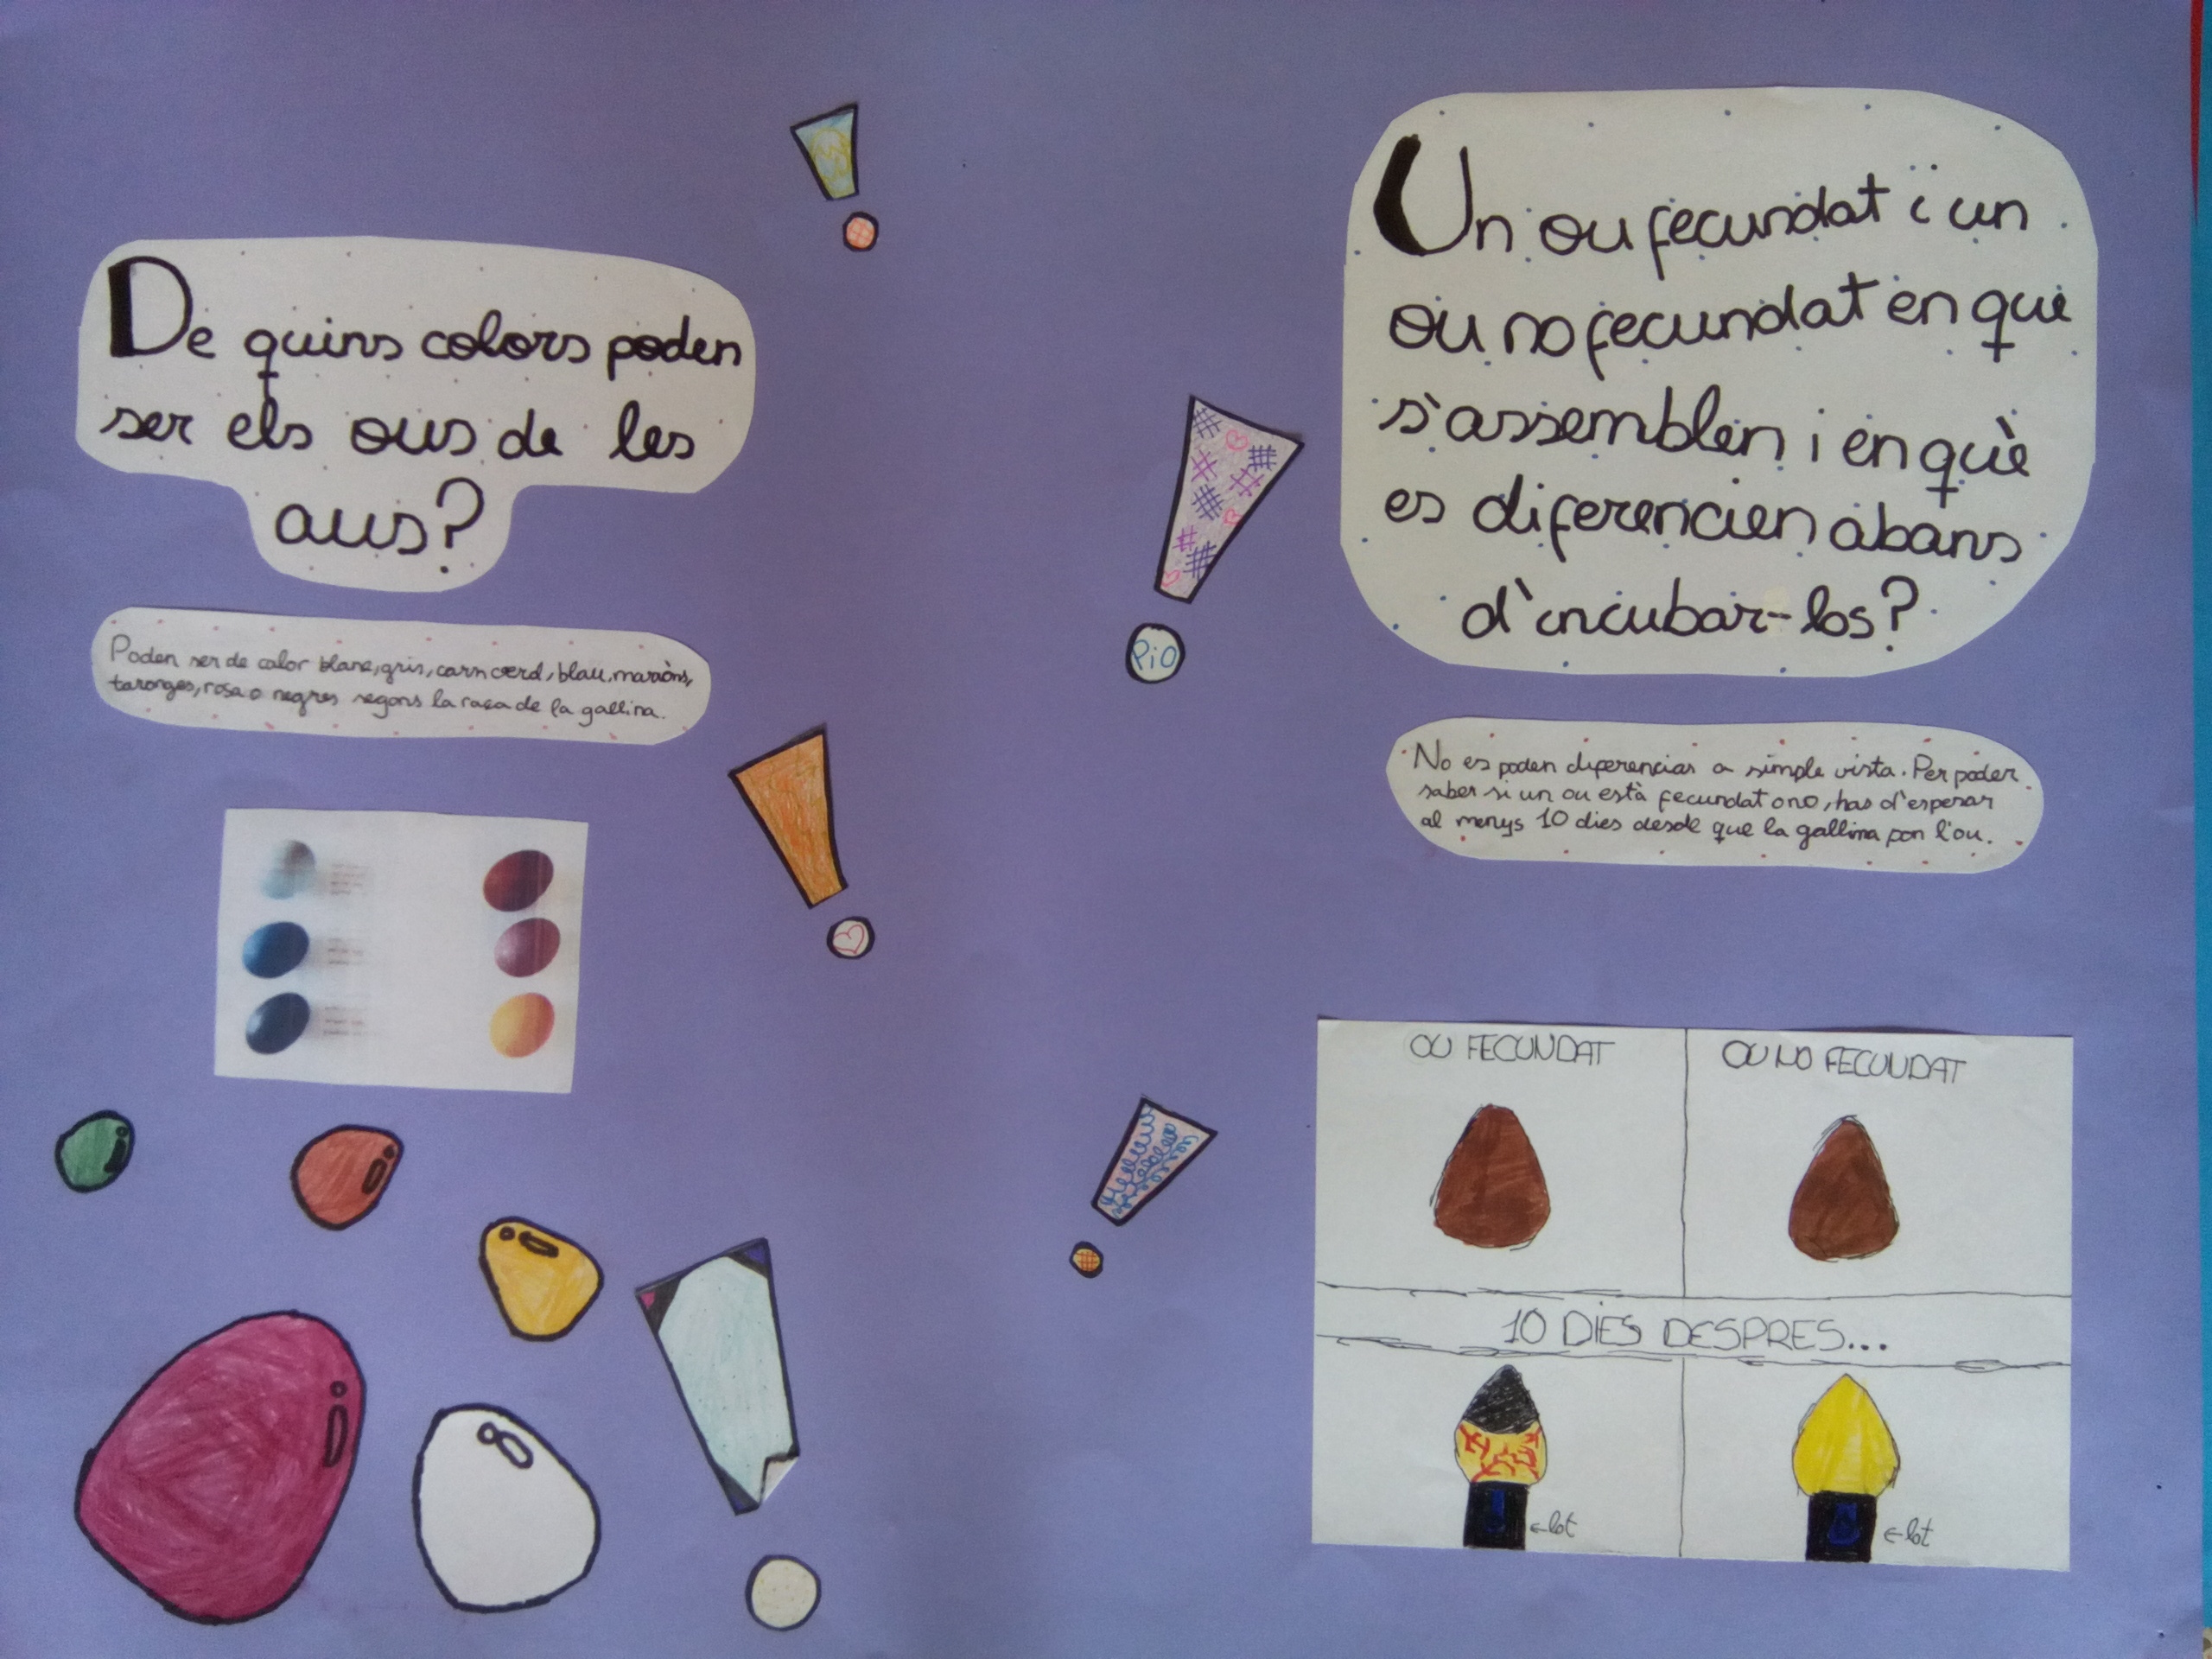 De quins colors poden
ser els ous de les
aus?
Poden ser de color blanc, gris, carn verd, blau, marròns,
taronges, rosa o negres segons la raça de la gallina.
PiO
Un ou fecundat i un
ou no fecundat en que
s'assemblen i en què
es diferencien abans
d'incubar-los?
No es poden diferenciar a simple vista. Per poder
saber si un ou està fecundat o no, has d'esperar
al menys 10 dies desde que la gallina pon l'ou.
OU FECUNDAT
OU NO FECUNDAT
10 DIES DESPRES...
←lot
←lot